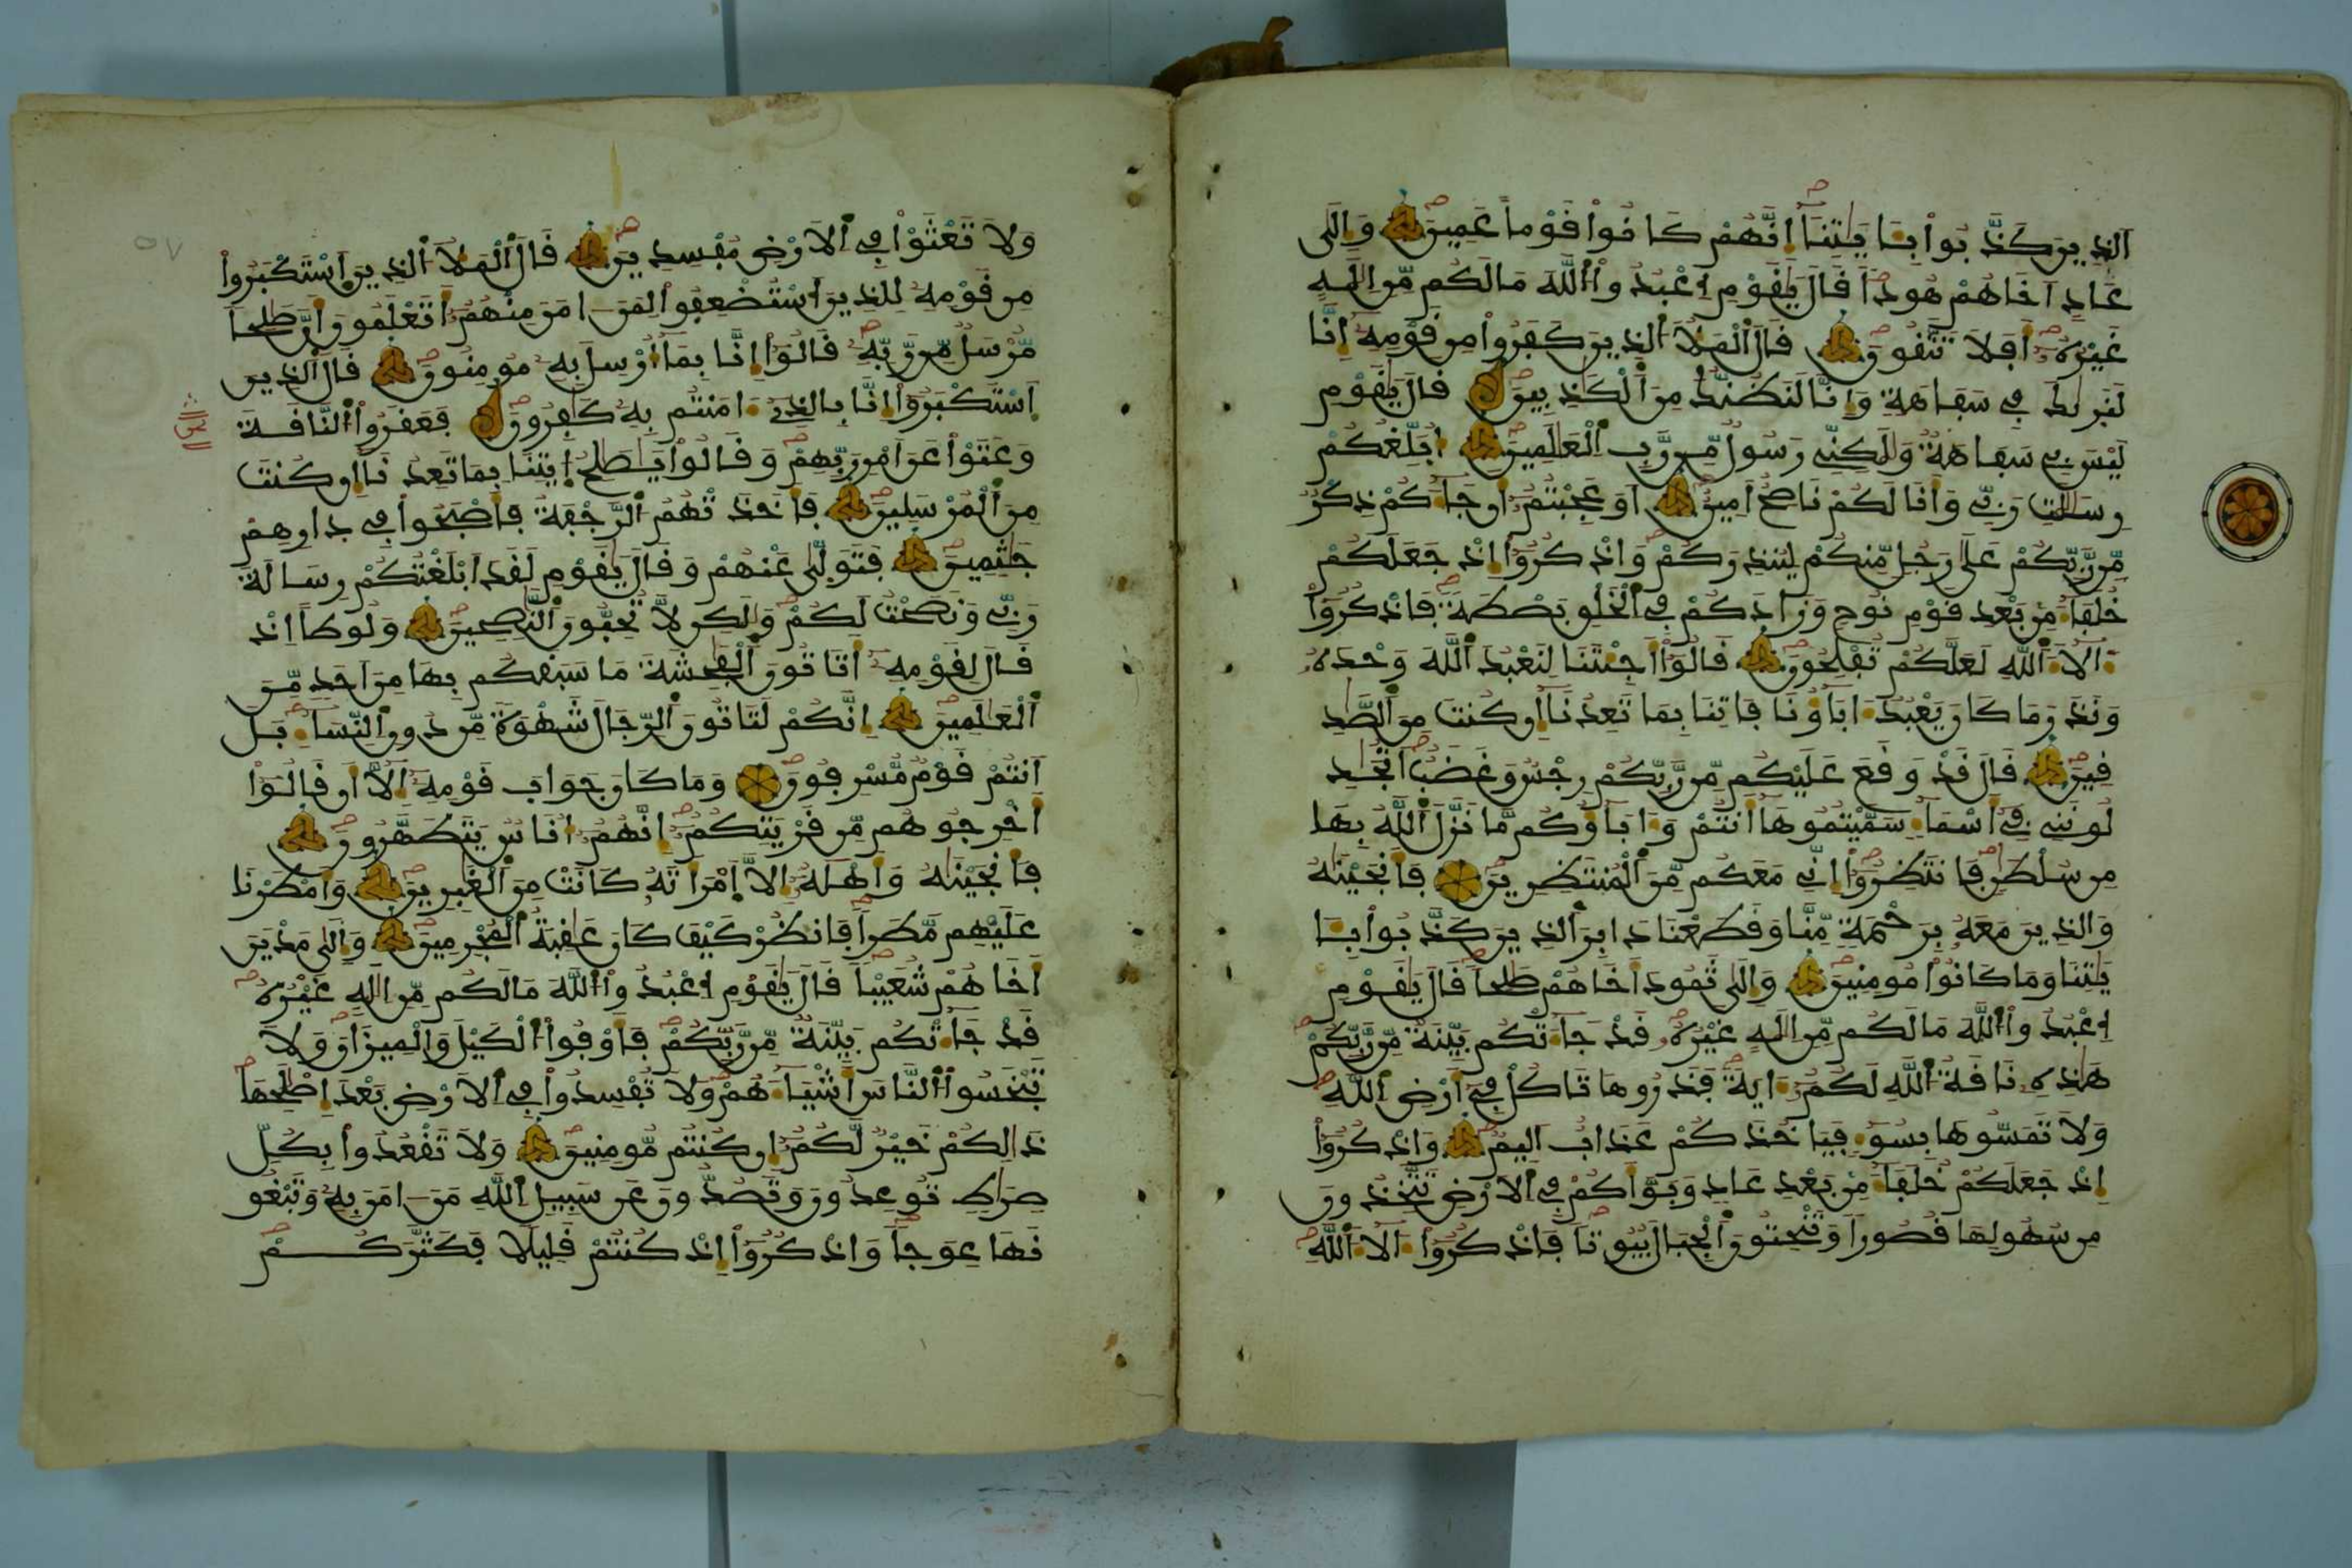 الذِينَ كَذَّبُواْ بِـَٔايَٰتِنَآ إِنَّهُمْ كَانُواْ قَوْماً عَمِينَ وَإِلَىٰ
عَادٍ أَخَاهُمْ هُوداً قَالَ يَٰقَوْمِ اِعْبُدُواْ اللَّهَ مَا لَكُم مِّنِ اِلَٰهٍ
غَيْرُهُۥٓ أَفَلَا تَتَّقُونَ قَالَ اَلْمَلَأُ الذِينَ كَفَرُواْ مِن قَوْمِهِۦٓ إِنَّا
لَنَرَىٰكَ فِي سَفَاهَةٍ وَإِنَّا لَنَظُنُّكَ مِنَ اَلْكَٰذِبِينَ قَالَ يَٰقَوْمِ
لَيْسَ بِي سَفَاهَةٌ وَلَٰكِنِّي رَسُولٌ مِّن رَّبِّ اِلْعَٰلَمِينَ أُبَلِّغُكُمْ
رِسَٰلَٰتِ رَبِّي وَأَنَا لَكُمْ نَاصِحٌ اَمِينٌ أَوَعَجِبْتُمُۥٓ أَن جَآءَكُمْ ذِكْرٌ
مِّن رَّبِّكُمْ عَلَىٰ رَجُلٍ مِّنكُمْ لِيُنذِرَكُمْ وَاذْكُرُوٓاْ إِذْ جَعَلَكُمْ
خُلَفَآءَ مِنۢ بَعْدِ قَوْمِ نُوحٍ وَزَادَكُمْ فِي اِلْخَلْقِ بَصْطَةً فَاذْكُرُوٓاْ
ءَالَآءَ اَللَّهِ لَعَلَّكُمْ تُفْلِحُونَ قَالُوٓاْ أَجِئْتَنَا لِنَعْبُدَ اَللَّهَ وَحْدَهُۥ
وَنَذَرَ مَا كَانَ يَعْبُدُ ءَابَآؤُنَا فَاتِنَا بِمَا تَعِدُنَآ إِن كُنتَ مِنَ اَلصَّٰدِ
قِينَ قَالَ قَدْ وَقَعَ عَلَيْكُم مِّن رَّبِّكُمْ رِجْسٌ وَغَضَبٌ اَتُجَٰدِ
لُونَنِي فِيٓ أَسْمَآءٍ سَمَّيْتُمُوهَآ أَنتُمْ وَءَابَآؤُكُم مَّا نَزَّلَ اَللَّهُ بِهَا
مِن سُلْطَٰنٍ فَانتَظِرُوٓاْ إِنِّي مَعَكُم مِّنَ اَلْمُنتَظِرِينَ فَأَنجَيْنَٰهُ
وَالذِينَ مَعَهُۥ بِرَحْمَةٍ مِّنَّا وَقَطَعْنَا دَابِرَ اَلذِينَ كَذَّبُواْ بِـَٔا
يَٰتِنَا وَمَا كَانُواْ مُومِنِينَ وَإِلَىٰ ثَمُودَ أَخَاهُمْ صَٰلِحاً قَالَ يَٰقَوْمِ
اِعْبُدُواْ اللَّهَ مَا لَكُم مِّنِ اِلَٰهٍ غَيْرُهُۥ قَدْ جَآءَتْكُم بَيِّنَةٌ مِّن رَّبِّكُمْ
هَٰذِهِۦ نَاقَةُ اُللَّهِ لَكُمُۥٓ ءَايَةً فَذَرُوهَا تَاكُلْ فِيٓ أَرْضِ اِللَّهِ
وَلَا تَمَسُّوهَا بِسُوٓءٍ فَيَاخُذَكُمْ عَذَابٌ اَلِيمٌ وَاذْكُرُوٓاْ
إِذْ جَعَلَكُمْ خُلَفَآءَ مِنۢ بَعْدِ عَادٍ وَبَوَّأَكُمْ فِي اِلَارْضِ تَتَّخِذُونَ
مِن سُهُولِهَا قُصُوراً وَتَنْحِتُونَ اَلْجِبَالَ بُيُوتاً فَاذْكُرُوٓاْ ءَالَآءَ اَللَّهِ
وَلَا تَعْثَوْاْ فِي اِلَارْضِ مُفْسِدِينَ قَالَ اَلْمَلَأُ الذِينَ اَسْتَكْبَرُواْ
مِن قَوْمِهِۦ لِلذِينَ اَسْتُضْعِفُواْ لِمَنَ ـ امَنَ مِنْهُمُۥٓ أَتَعْلَمُونَ أَنَّ صَٰلِحاً
مُّرْسَلٌ مِّن رَّبِّهِۦ قَالُوٓاْ إِنَّا بِمَآ أُرْسِلَ بِهِۦ مُومِنُونَ قَالَ اَلذِينَ
اَسْتَكْبَرُوٓاْ إِنَّا بِالذِيٓ ءَامَنتُم بِهِۦ كَٰفِرُونَ فَعَقَرُواْ اُلنَّاقَةَ
وَعَتَوْاْ عَنَ اَمْرِ رَبِّهِمْ وَقَالُواْ يَٰصَٰلِحُ اِيتِنَا بِمَا تَعِدُنَآ إِن كُنتَ
مِنَ اَلْمُرْسَلِينَ فَأَخَذَتْهُمُ اُلرَّجْفَةُ فَأَصْبَحُواْ فِي دِارِهِمْ
جَٰثِمِينَ فَتَوَلَّىٰ عَنْهُمْ وَقَالَ يَٰقَوْمِ لَقَدَ اَبْلَغْتُكُمْ رِسَالَةَ
رَبِّي وَنَصَحْتُ لَكُمْ وَلَٰكِن لَّا تُحِبُّونَ اَلنَّٰصِحِينَ وَلُوطاً اِذْ
قَالَ لِقَوْمِهِۦٓ أَتَاتُونَ اَلْفَٰحِشَةَ مَا سَبَقَكُم بِهَا مِنَ اَحَدٍ مِّنَ
اَلْعَٰلَمِينَ إِنَّكُمْ لَتَاتُونَ اَلرِّجَالَ شَهْوَةً مِّن دُونِ اِلنِّسَآءِ بَلَ
اَنتُمْ قَوْمٌ مُّسْرِفُونَ وَمَا كَانَ جَوَابَ قَوْمِهِۦٓ إِلَّآ أَن قَالُوٓاْ
أَخْرِجُوهُم مِّن قَرْيَتِكُمُۥٓ إِنَّهُمُۥٓ أُنَاسٌ يَتَطَهَّرُونَ
فَأَنجَيْنَٰهُ وَأَهْلَهُۥٓ إِلَّا اَمْرَأَتَهُۥ كَانَتْ مِنَ اَلْغَٰبِرِينَ وَأَمْطَرْنَا
عَلَيْهِم مَّطَراً فَانظُرْ كَيْفَ كَانَ عَٰقِبَةُ اُلْمُجْرِمِينَ وَإِلَىٰ مَدْيَنَ
أَخَاهُمْ شُعَيْباً قَالَ يَٰقَوْمِ اِعْبُدُواْ اللَّهَ مَا لَكُم مِّنِ اِلَٰهٍ غَيْرُهُۥ
قَدْ جَآءَتْكُم بَيِّنَةٌ مِّن رَّبِّكُمْ فَأَوْفُواْ اُلْكَيْلَ وَالْمِيزَانَ وَلَا
تَبْخَسُواْ اُلنَّاسَ أَشْيَآءَهُمْ وَلَا تُفْسِدُواْ فِي اِلَارْضِ بَعْدَ إِصْلَٰحِهَا
ذَٰلِكُمْ خَيْرٌ لَّكُمُۥٓ إِن كُنتُم مُّومِنِينَ وَلَا تَقْعُدُواْ بِكُلِّ
صِرَٰطٍ تُوعِدُونَ وَتَصُدُّونَ عَن سَبِيلِ اِللَّهِ مَنَ ـ امَنَ بِهِۦ وَتَبْغُو
نَهَا عِوَجاً وَاذْكُرُوٓاْ إِذْ كُنتُمْ قَلِيلًا فَكَثَّرَكُمْ